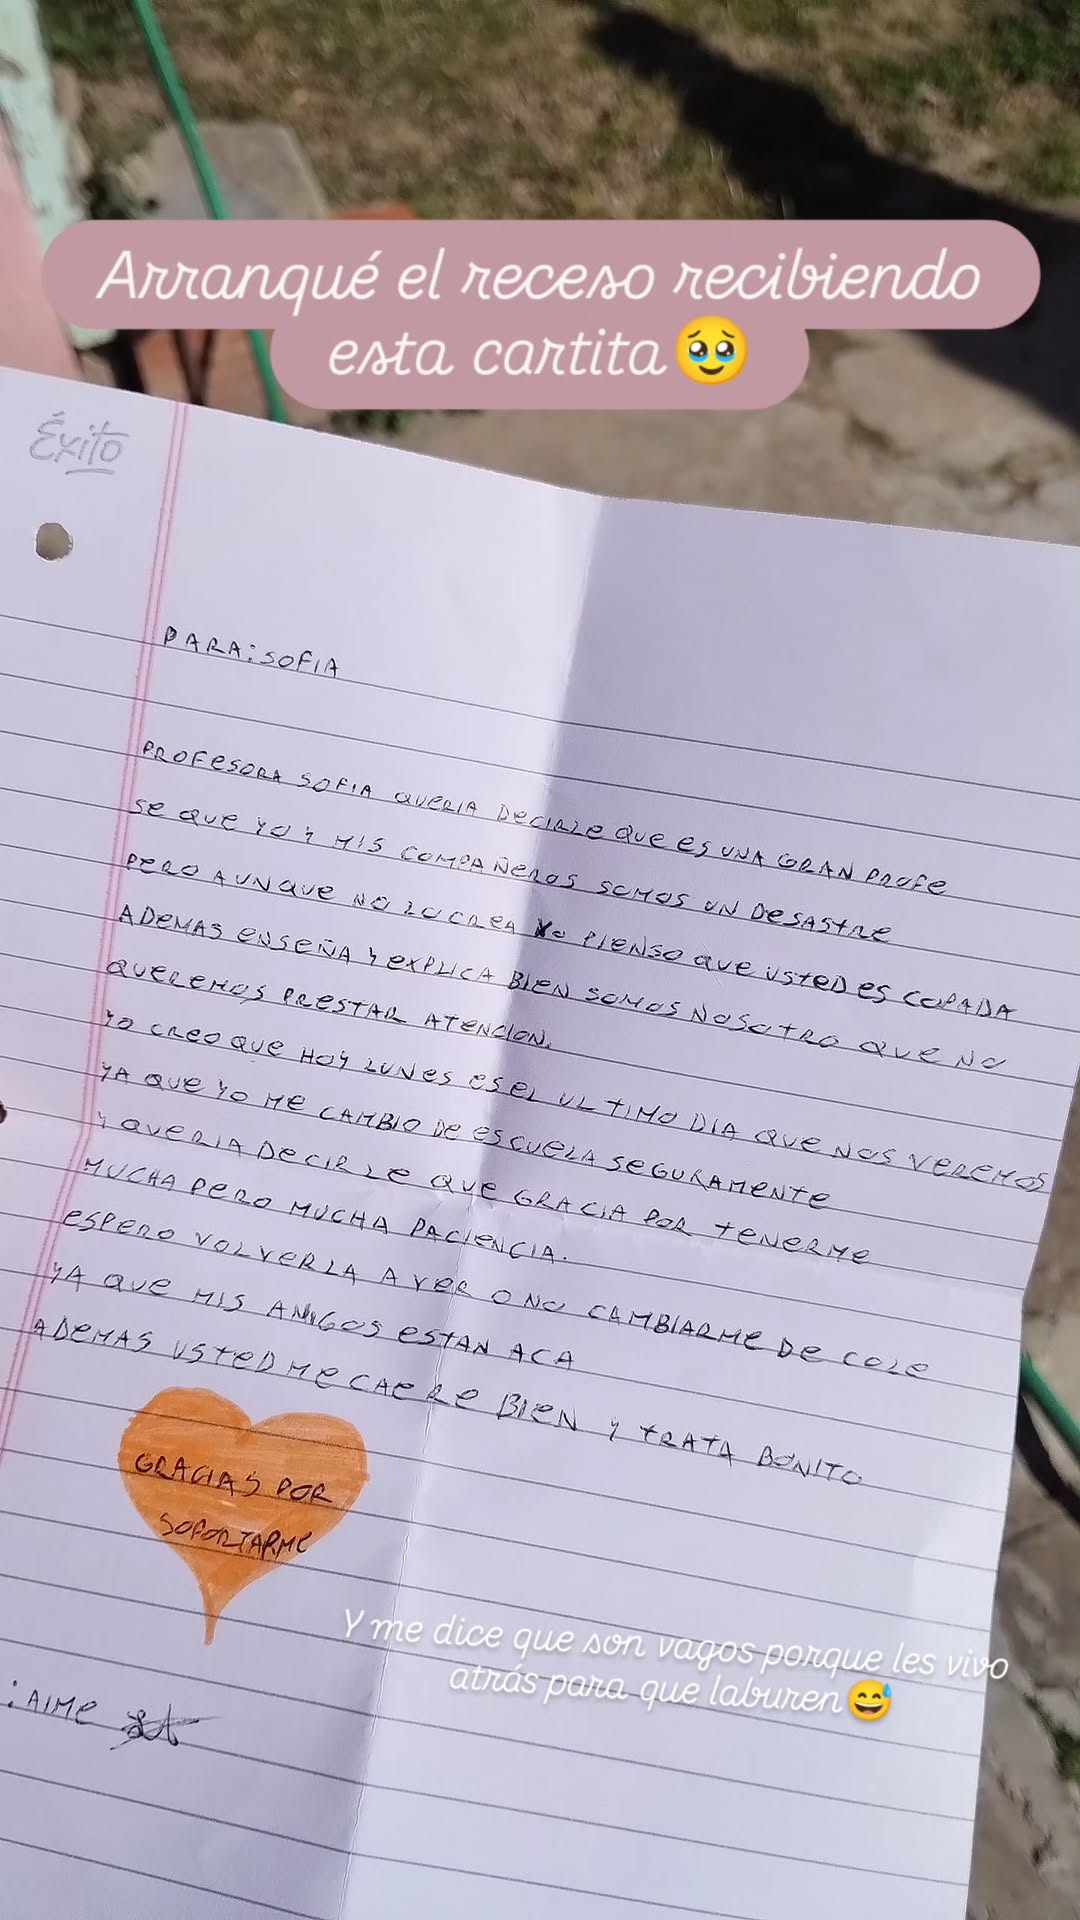 Arranqué el receso recibiendo
esta cartita🥹
Éxito
PARA: SOFIA
PROFESORA SOFIA QUERIA DECIRLE QUE ES UNA GRAN PROFE
SE QUE YO Y MIS COMPAÑEROS SOMOS UN DESASTRE
PERO AUNQUE NO LO CREA YO PIENSO QUE USTED ES COPADA
ADEMAS ENSEÑA Y EXPLICA BIEN SOMOS NOSOTRO QUE NO
QUEREMOS PRESTAR ATENCION.
YO CREO QUE HOY LUNES ES EL ULTIMO DIA QUE NOS VEREMOS
YA QUE YO ME CAMBIO DE ESCUELA SEGURAMENTE
Y QUERIA DECIRLE QUE GRACIA POR TENERME
MUCHA PERO MUCHA PACIENCIA.
ESPERO VOLVERLA A VER O NO CAMBIARME DE COLE
YA QUE MIS AMIGOS ESTAN ACA
ADEMAS USTED ME CAE RE BIEN Y TRATA BONITO
GRACIAS POR
SOPORTARME
Y me dice que son vagos porque les vivo
atrás para que laburen😅
: AIME